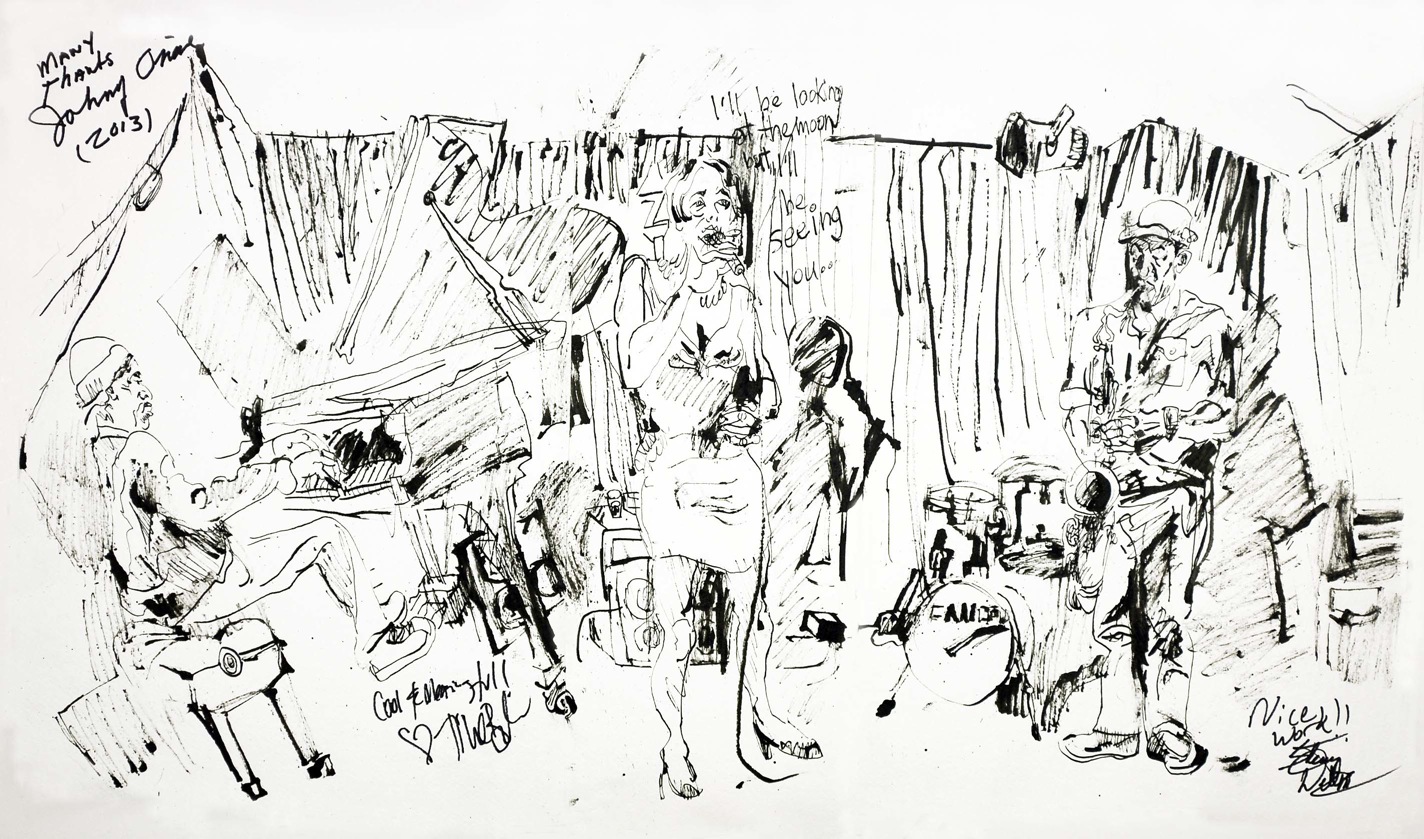 MANY
thanks
Johnny
(2013)
I'll be looking
at the moon
but I'll
be
seeing
you...
Cool & Meaningful!
Nice
work!!